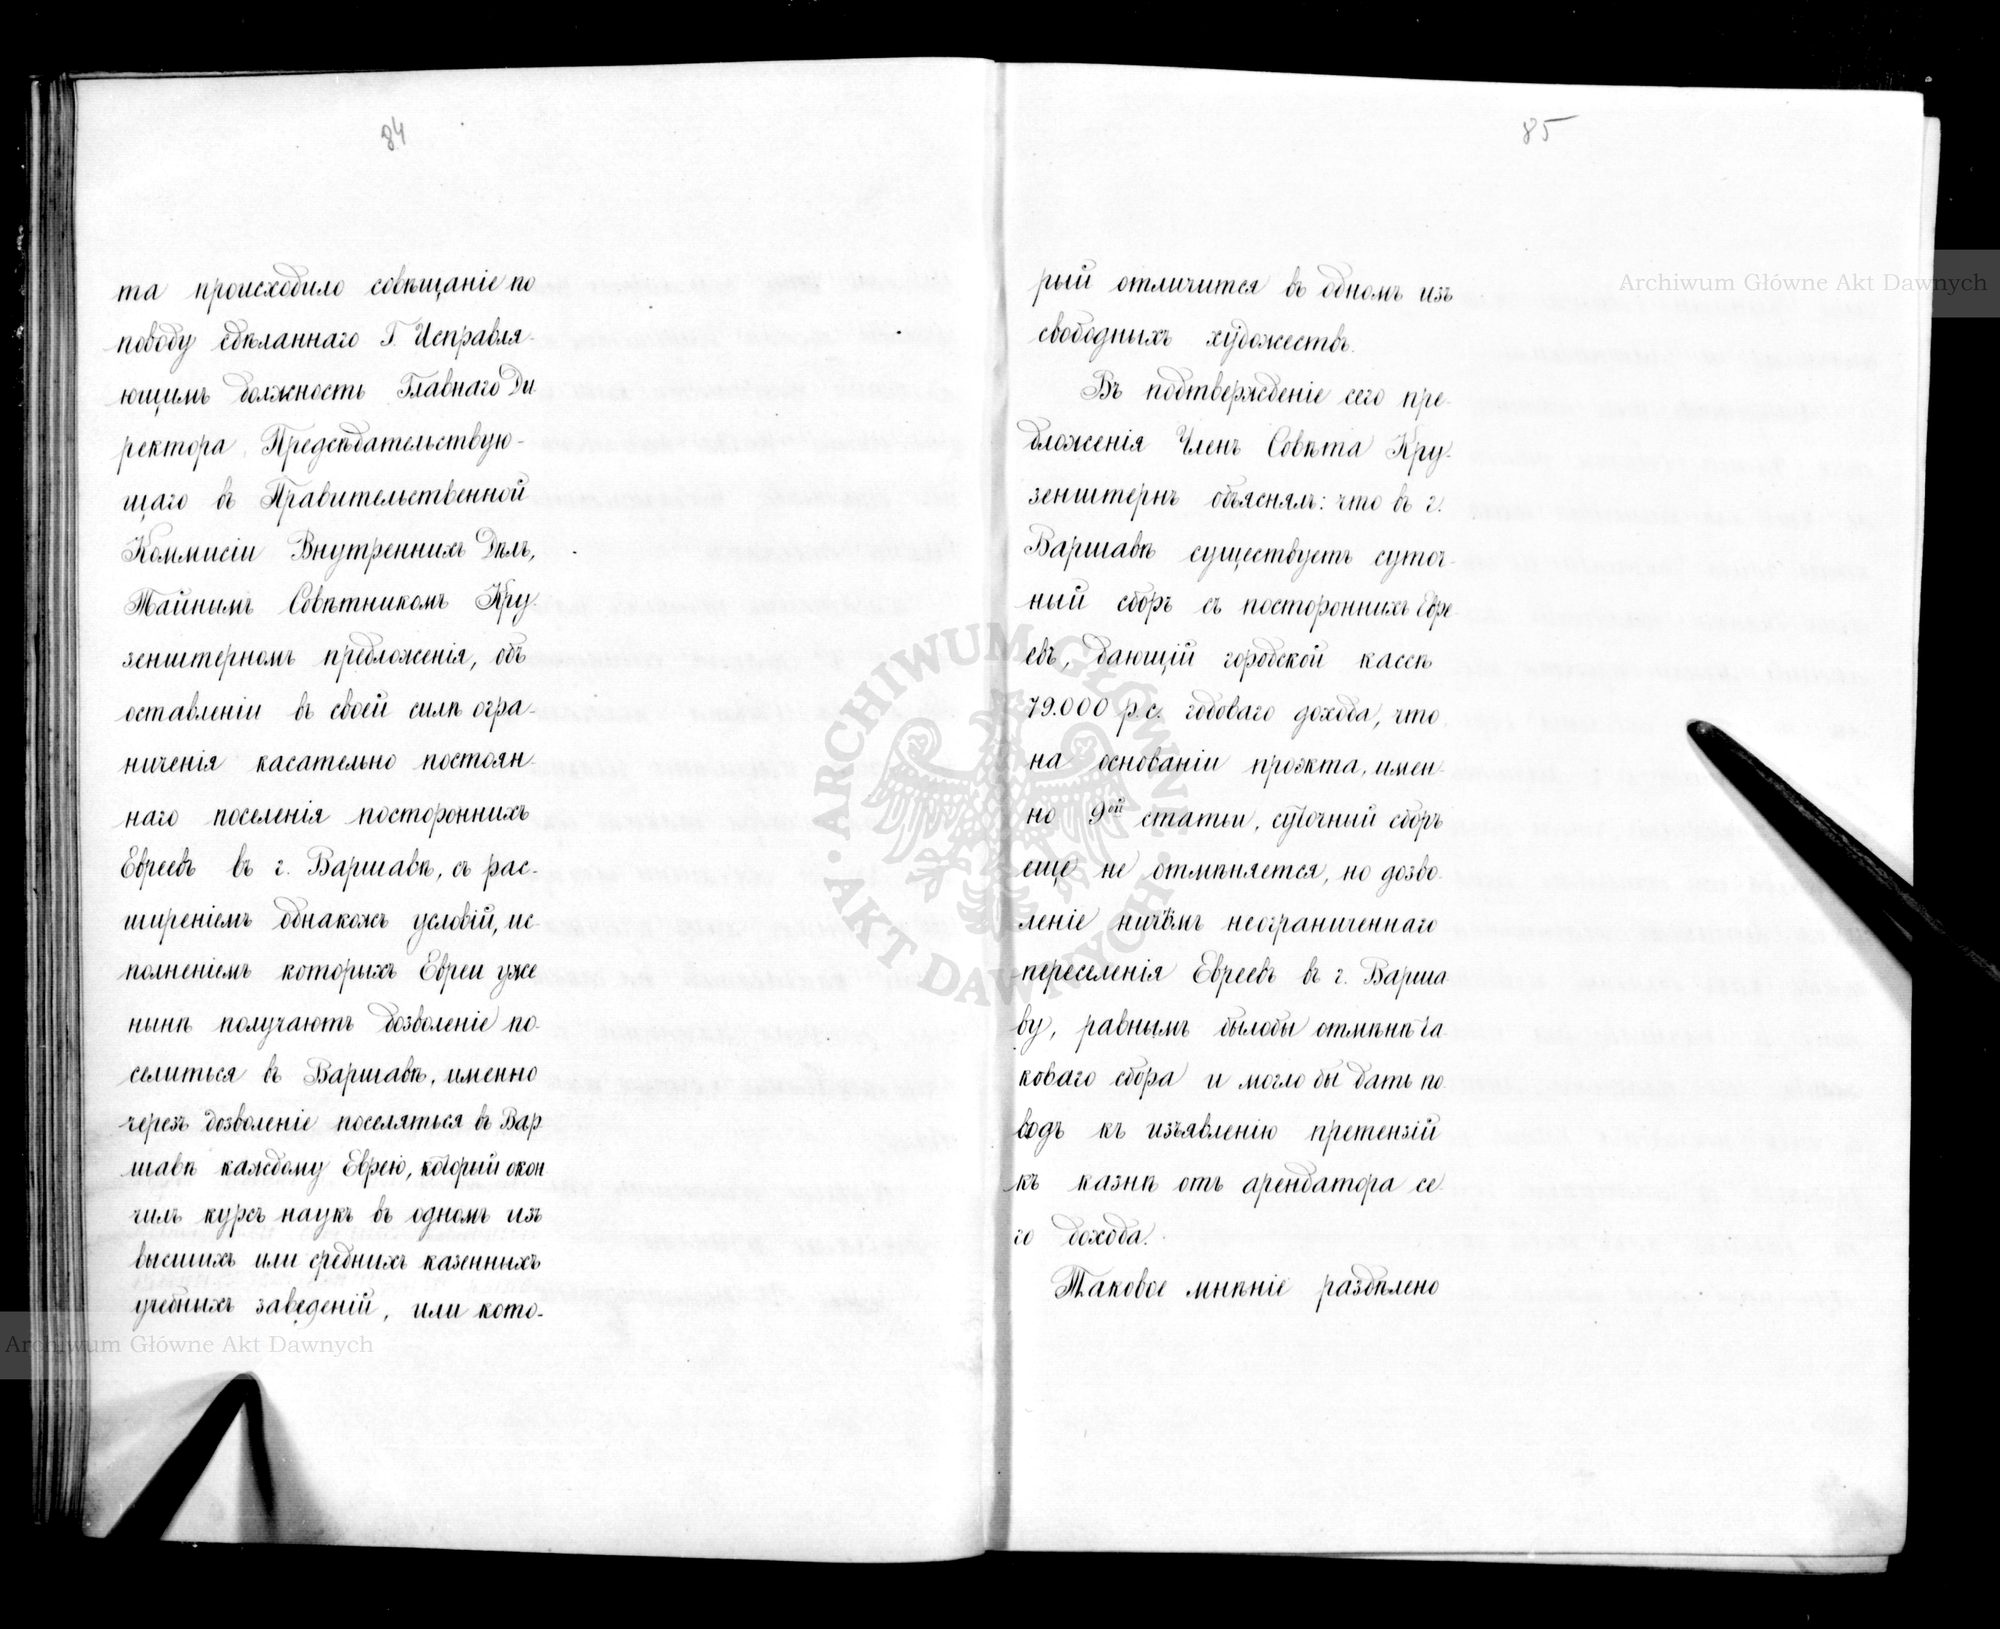 84
та происходило совѣщаніе по
поводу сдѣланнаго Г. Исправля-
ющимъ должность Главнаго Ди
ректора Предсѣдательствую-
щаго въ Правительственной
Коммисіи Внутреннихъ Дѣлъ,
Тайнымъ Совѣтникомъ Кру-
зенштерномъ предложенія, объ
оставленіи въ своей силѣ огра-
ниченія касательно постоян-
наго поселенія постороннихъ
Евреевъ въ г. Варшавѣ, съ рас-
ширеніемъ однакожъ условій, ис-
полненіемъ которыхъ Евреи уже
нынѣ получаютъ дозволеніе по-
селиться въ Варшавѣ, именно
черезъ дозволеніе поселяться въ Вар
шавѣ каждому Еврею, который окон
чилъ курсъ наукъ въ одномъ изъ
высшихъ или среднихъ казенныхъ
учебныхъ заведеній, или кото-
85
рый отличится въ одномъ изъ
свободныхъ художествъ.
Въ подтвержденіе сего пре-
дложенія Членъ Совѣта Кру-
зенштернъ объяснялъ: что въ г.
Варшавѣ существуетъ суточ-
ный сборъ съ постороннихъ Евре
евъ, дающій городской кассѣ
79.000 р.с. годоваго дохода, что
на основаніи проэкта, имен-
но 9ой статьи, суточный сборъ
еще не отмѣняется, но дозво-
леніе ничѣмъ неограниченнаго
переселенія Евреевъ въ г. Варша
ву, равнымъ былобы отмѣнѣ та
коваго сбора и могло бы дать по
водъ къ изъявленію претензій
къ казнѣ отъ арендатора се
го дохода.
Таковое мнѣніе раздѣлено
Archiwum Główne Akt Dawnych
Archiwum Główne Akt Dawnych
ARCHIWUM GŁÓWNE
AKT DAWNYCH